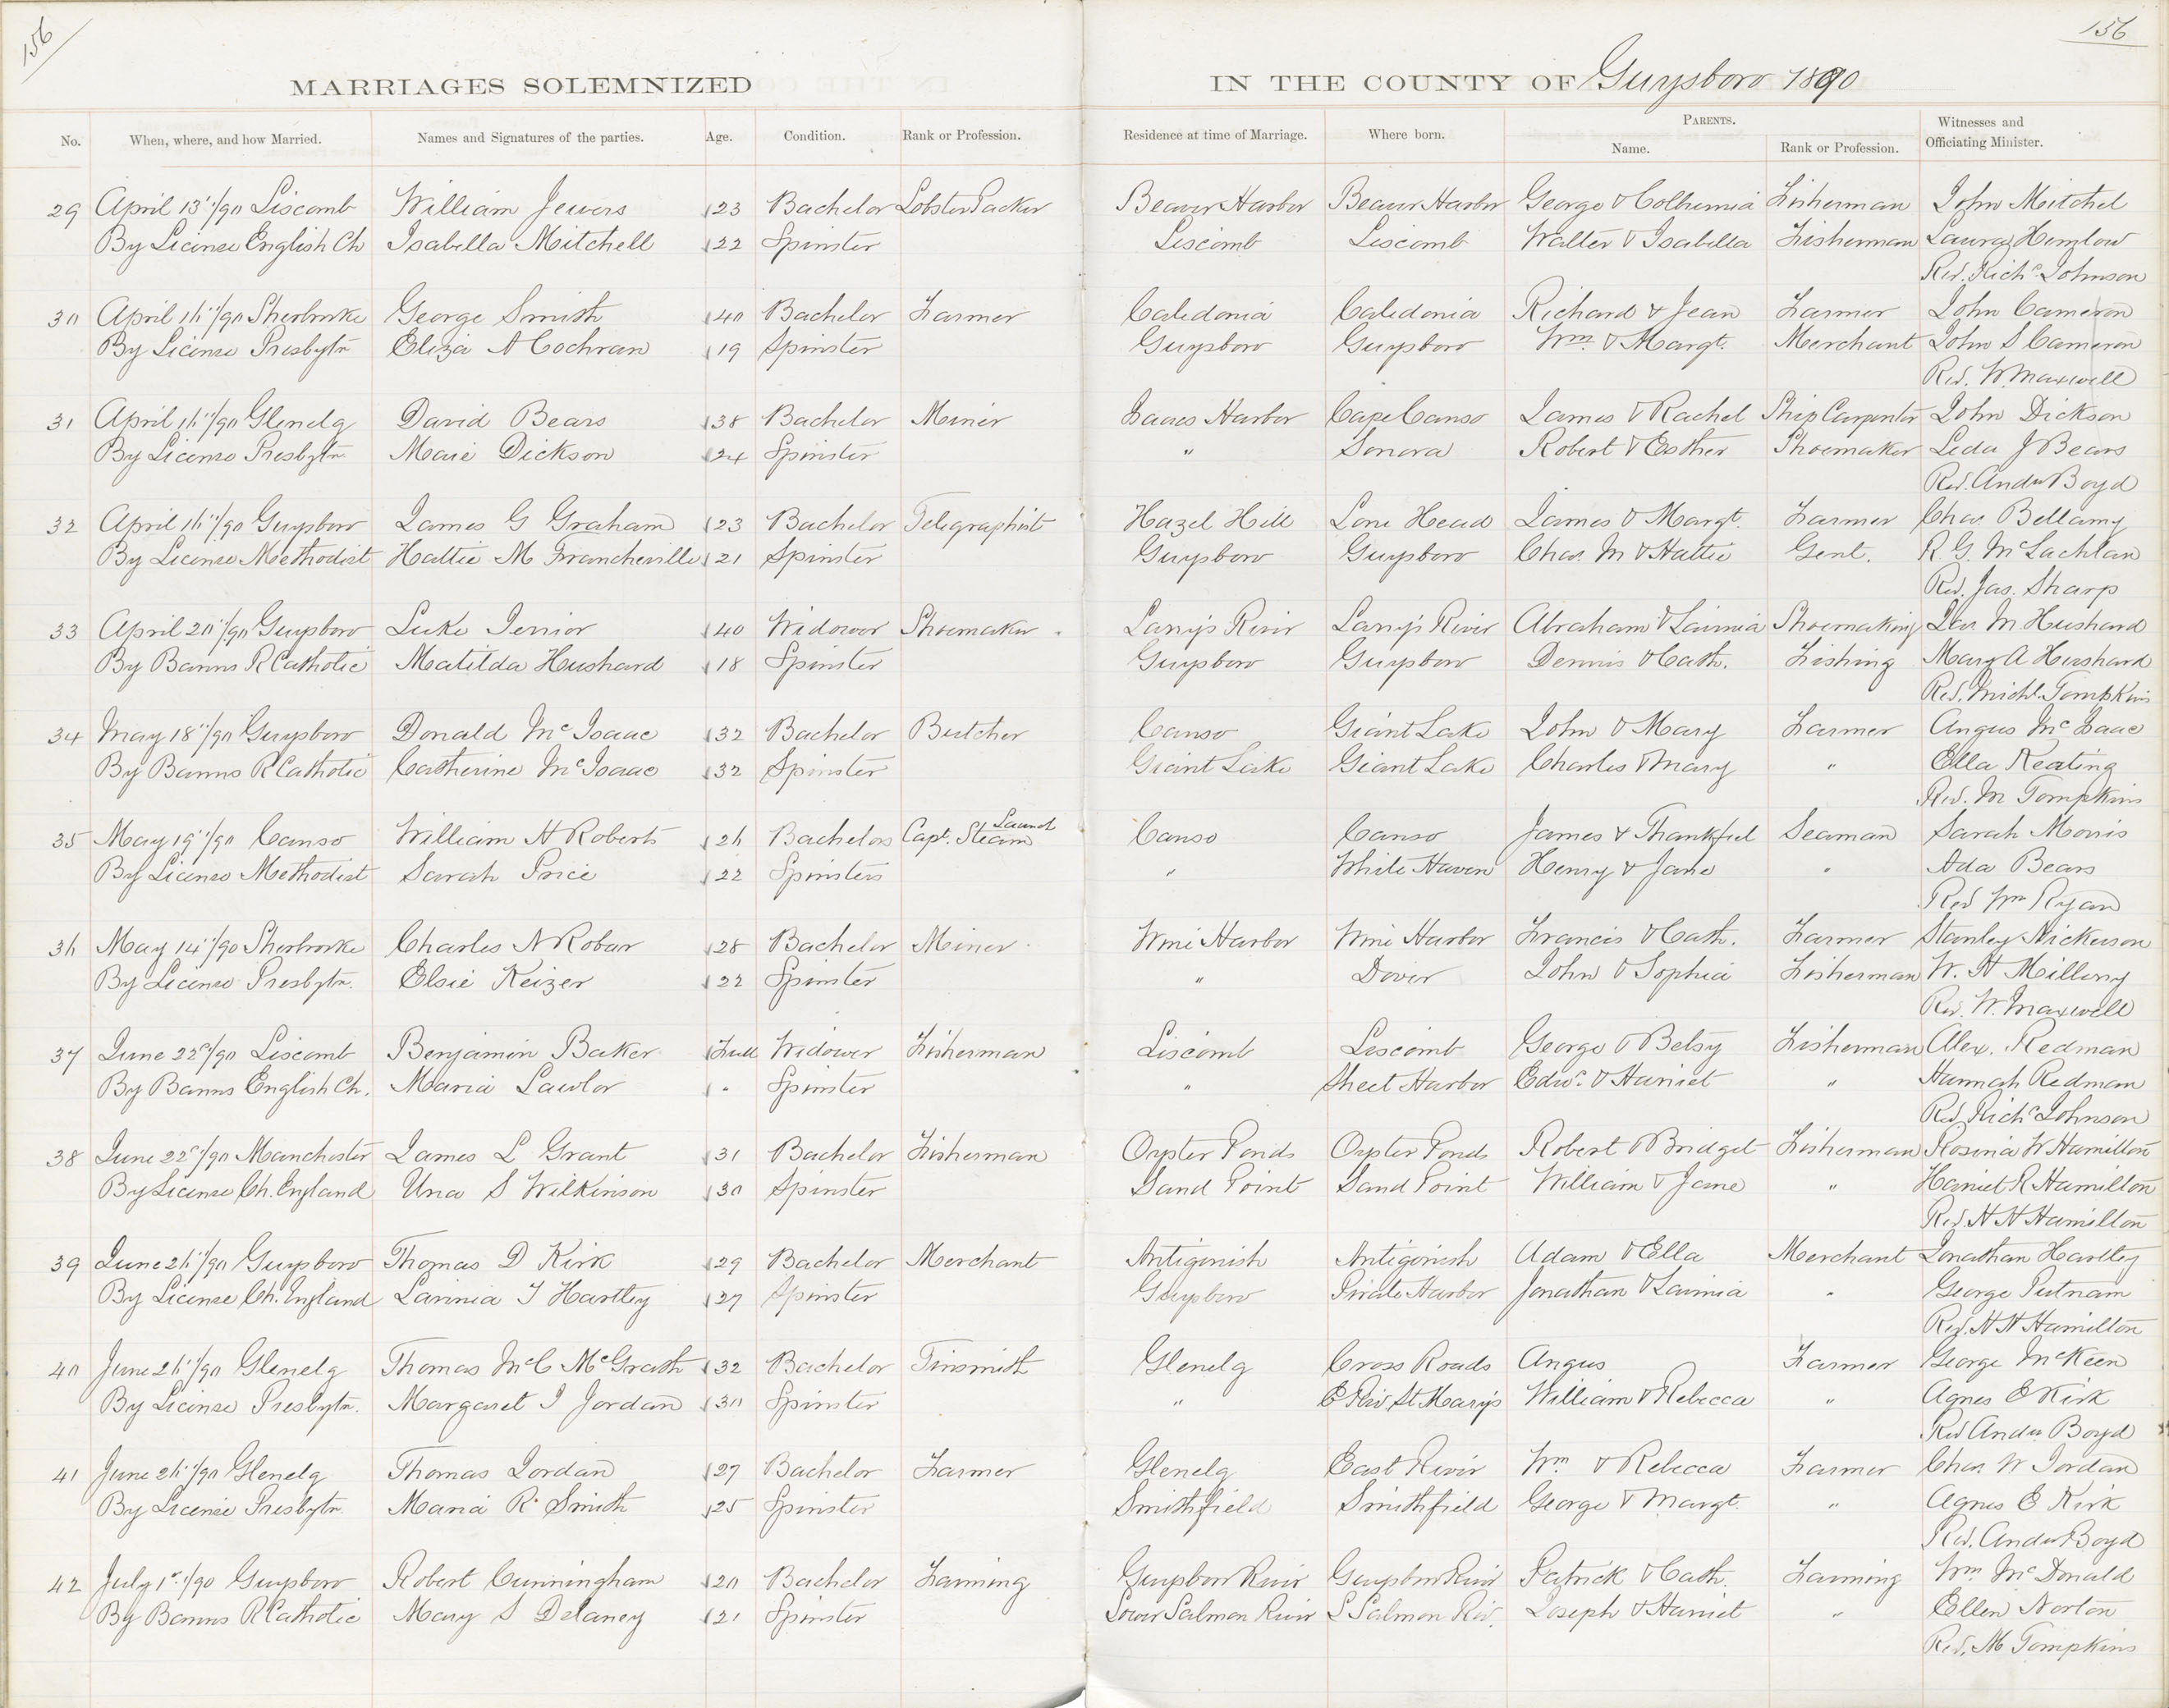 156
156
MARRIAGES SOLEMNIZED IN THE COUNTY OF Guysboro 1890
No. When, where, and how Married. Names and Signatures of the parties. Age. Condition. Rank or Profession. Residence at time of Marriage. Where born. PARENTS. Name. Rank or Profession. Witnesses and Officiating Minister.
29 April 13"/90 Liscomb William Jewers 23 Bachelor Lobster Packer Beaver Harbor Beaver Harbor George & Fisherman John Mitchel
By License English Ch Isabella Mitchell 22 Spinster Liscomb Liscomb Walter & Isabella Fisherman Laura Hemlow
Rev. Richd Johnson
30 April 16"/90 Sherbrooke George Smith 40 Bachelor Farmer Caledonia Caledonia Richard & Jean Farmer John Cameron
By License Presbytn Eliza A Cochran 19 Spinster Guysboro Guysboro Wm. & Margt. Merchant John S Cameron
Rev. W. Maxwell
31 April 16"/90 Glenelg David Bears 38 Bachelor Miner Isaacs Harbor Cape Canso James & Rachel Ship Carpenter John Dickson
By License Presbytn Dickson 24 Spinster " Sonora Robert & Esther Shoemaker Leda J Bears
Rev. Andw Boyd
32 April 16"/90 Guysboro James G Graham 23 Bachelor Telegraphist Hazel Hill Head James & Margt. Farmer Chas. Bellamy
By License Methodist Hattie M Francheville 21 Spinster Guysboro Guysboro Chas. M & Hattie Gent. R G. McLachlan
Rev. Jas. Sharp
33 April 20"/90 Guysboro Luke 40 Widower Shoemaker Larry's River Larry's River Abraham & Lavinia Shoemaking M Hushard
By Banns R Catholic Matilda Hushard 18 Spinster Guysboro Guysboro Dennis & Cath. Fishing Mary A Hushard
Rev. Michl. Tompkins
34 May 18"/90 Guysboro Donald McIsaac 32 Bachelor Butcher Canso Giant Lake John & Mary Farmer Angus McIsaac
By Banns R Catholic Catherine McIsaac 32 Spinster Giant Lake Giant Lake Charles & Mary " Ella Keating
Rev. M Tompkins
35 May 19"/90 Canso William H Roberts 26 Bachelor Capt. Steam Launch Canso Canso James & Thankful Seaman Sarah Morris
By License Methodist Sarah Price 22 Spinster " White Haven Henry & Jane " Ada Bears
Rev Wm Ryan
36 May 14"/90 Sherbrooke Charles N Robar 28 Bachelor Miner Wine Harbor Wine Harbor Francis & Cath. Farmer Stanley Nickerson
By License Presbytn. Elsie Keizer 22 Spinster " Dover John & Sophia Fisherman W. H
Rev. W. Maxwell
37 June 22d/90 Liscomb Benjamin Baker Full Widower Fisherman Liscomb Liscomb George & Betsy Fisherman Alex. Redman
By Banns English Ch. Maria Lawlor " Spinster " Sheet Harbor Edwd. & Harriet " Hannah Redman
Rev Richd Johnson
38 June 22d/90 Manchester James L Grant 31 Bachelor Fisherman Oyster Ponds Oyster Ponds Robert & Bridget Fisherman Rosina W Hamilton
By License Ch. England Una S Wilkinson 30 Spinster Sand Point Sand Point William & Jane " Harriet R Hamilton
Rev. H H Hamilton
39 June 26"/90 Guysboro Thomas D Kirk 29 Bachelor Merchant Antigonish Antigonish Adam & Ella Merchant Jonathan Hartley
By License Ch. England Lavinia J Hartley 27 Spinster Guysboro Pirate Harbor Jonathan & Lavinia " George Putnam
Rev. H H Hamilton
40 June 26"/90 Glenelg Thomas McC McGrath 32 Bachelor Tinsmith Glenelg Cross Roads Angus Farmer George McKeen
By License Presbytn. Margaret J Jordan 30 Spinster " E Riv St Mary's William & Rebecca " Agnes E Kirk
Rev Andw Boyd
41 June 26"/90 Glenelg Thomas Jordan 27 Bachelor Farmer Glenelg East River Wm & Rebecca Farmer Chas W Jordan
By License Presbytn. Maria R. Smith 25 Spinster Smithfield Smithfield George & Margt. " Agnes E Kirk
Rev. Andw Boyd
42 July 1st/90 Guysboro Robert Cunningham 20 Bachelor Farming Guysboro River Guysboro River Patrick & Cath. Farming Wm McDonald
By Banns R Catholic Mary S Delaney 21 Spinster Lower Salmon River L Salmon Riv. Joseph & Harriet " Ellen Norton
Rev. M Tompkins